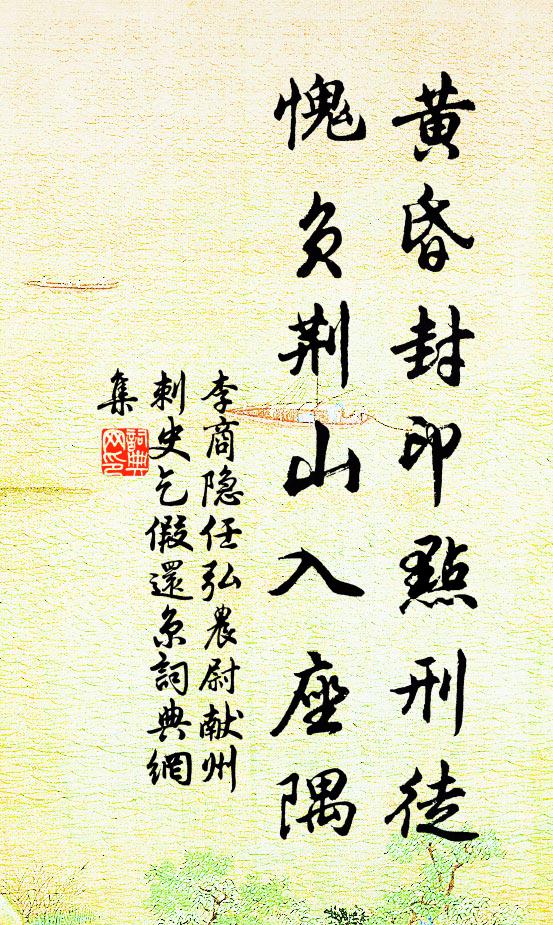 黄昏封印點刑徒
愧负荆山入座隅
李商隐任弘農尉献州
刺史乞假還京詞典網
集
詞典网印